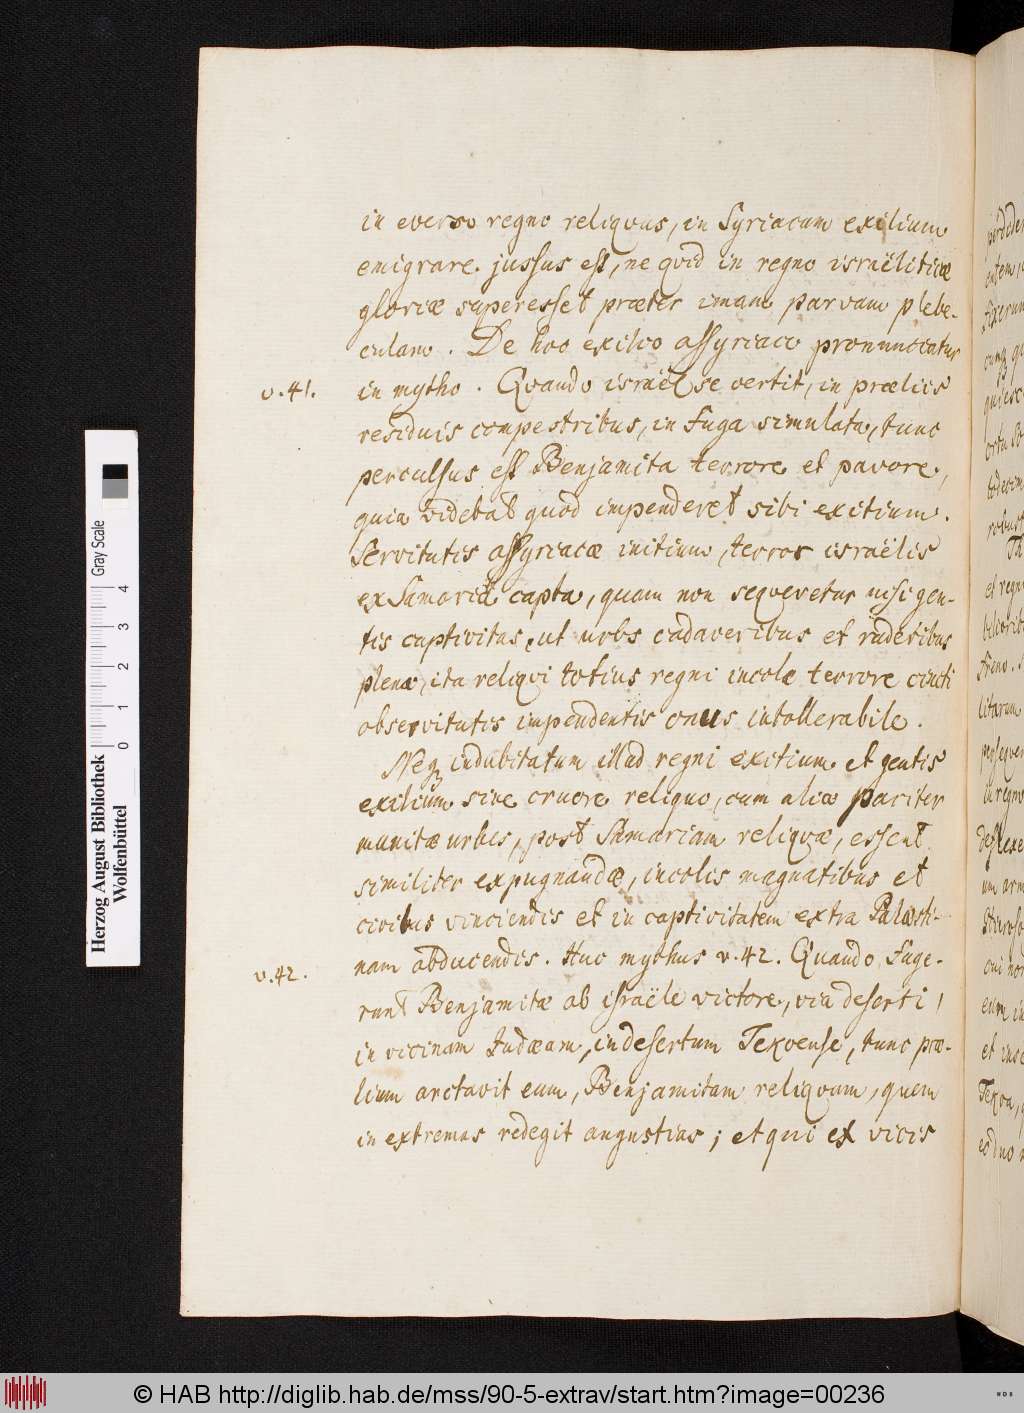 in everso regno reliqvus, in Syriacum exilium
emigrare jussus est, ne qvid in regno israëliticæ
gloriæ superesset præter imam parvam plebe-
culam. De hoc exilio assyriaco pronunciatur
v. 41. in mytho. Qvando israël se vertit, in præliis
residuis campestribus, in fuga simulata, tunc
perculsus est Benjamita terrore et pavore,
quia videbat quod impenderet sibi exitium.
Servitutis assyriacæ initium, terror israëlis
ex Samaria capta, quam non seqveretur nisi gen-
tis captivitas, ut urbs cadaveribus et ruderibus
plena, ita reliqvi totius regni incolæ terrore cincti
ob servitutis impendentis onus intollerabile.
Neq; indubitatum illud regni exitium et gentis
exilium sine cruore reliquo, cum aliæ pariter
munitæ urbes, post Samariam reliqvæ, essent
similiter expugnandæ, incolis magnatibus et
civibus vinciendis et in captivitatem extra Palæsti-
nam abducendis. Huc mythus v. 42. Quando fuge-
v. 42.
runt Benjamitæ ab israële victore, via deserti,
in vicinam Judæam, in desertum Teqvense, tunc præ-
lium arctavit eum, Benjamitam reliqvum, quem
in extremas redegit angustias; et qui ex vicis
Herzog August Bibliothek
Wolfenbüttel
0 1 2 3 4
Gray Scale
© HAB http://diglib.hab.de/mss/90-5-extrav/start.htm?image=00236